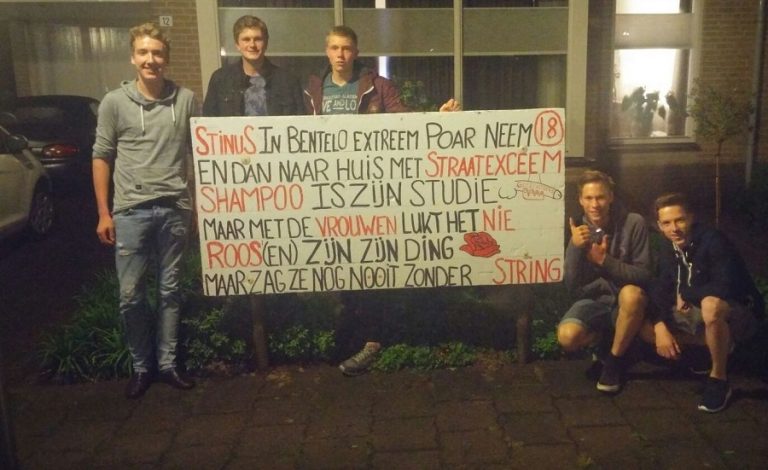 12
STINUS IN BENTELO EXTREEM POAR NEEM 18
EN DAN NAAR HUIS MET STRAATEXCEEM
SHAMPOO IS ZIJN STUDIE
MAAR MET DE VROUWEN LUKT HET NIE
ROOS'(EN) ZIJN ZIJN DING
MAAR ZAG ZE NOG NOOIT ZONDER STRING